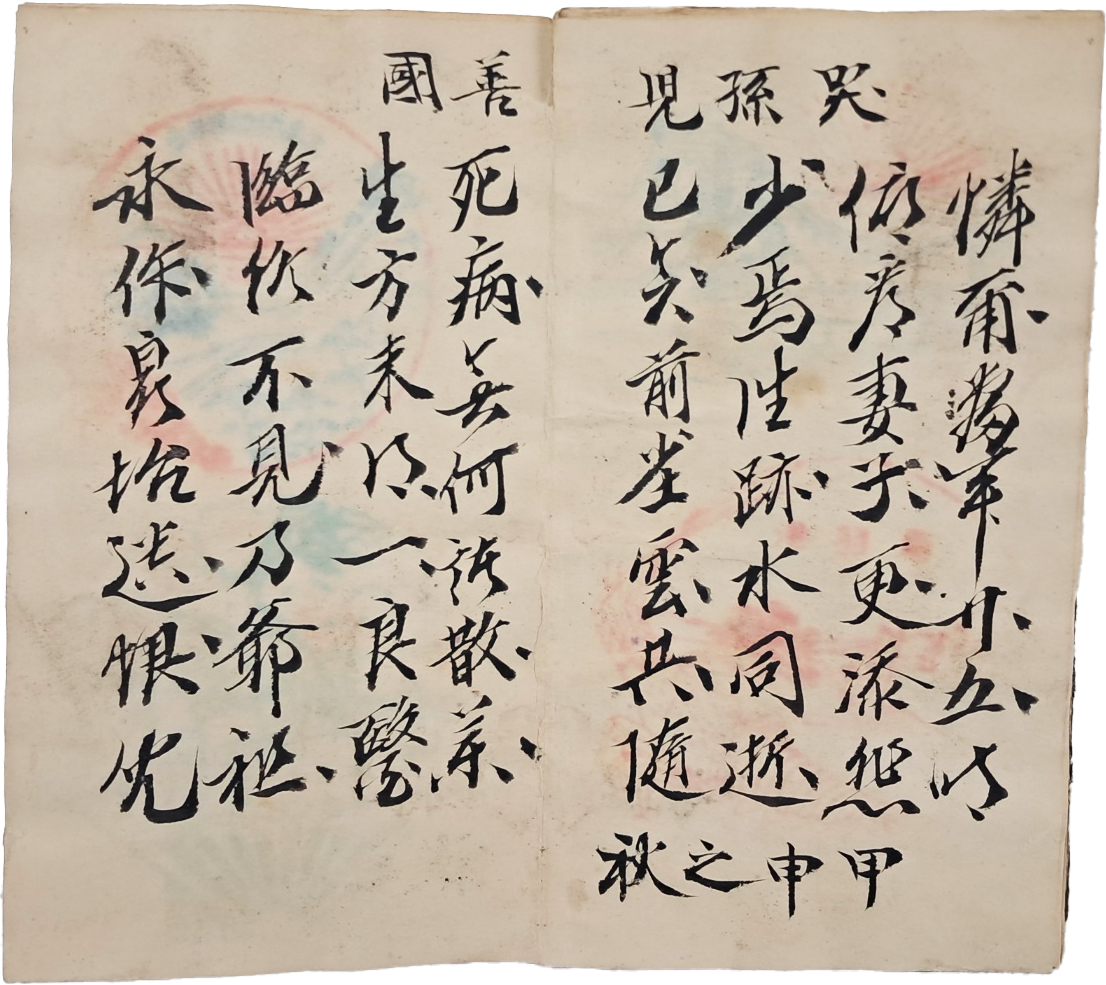 哭孫兒善國
憐爾年廿五時
妻子更添悲
少焉往跡水同逝
已矣前崖雲共隨
甲申之秋
死病無何散藥
生方未得一良醫
臨終不見乃爺祖
永作泉坮遺恨兒